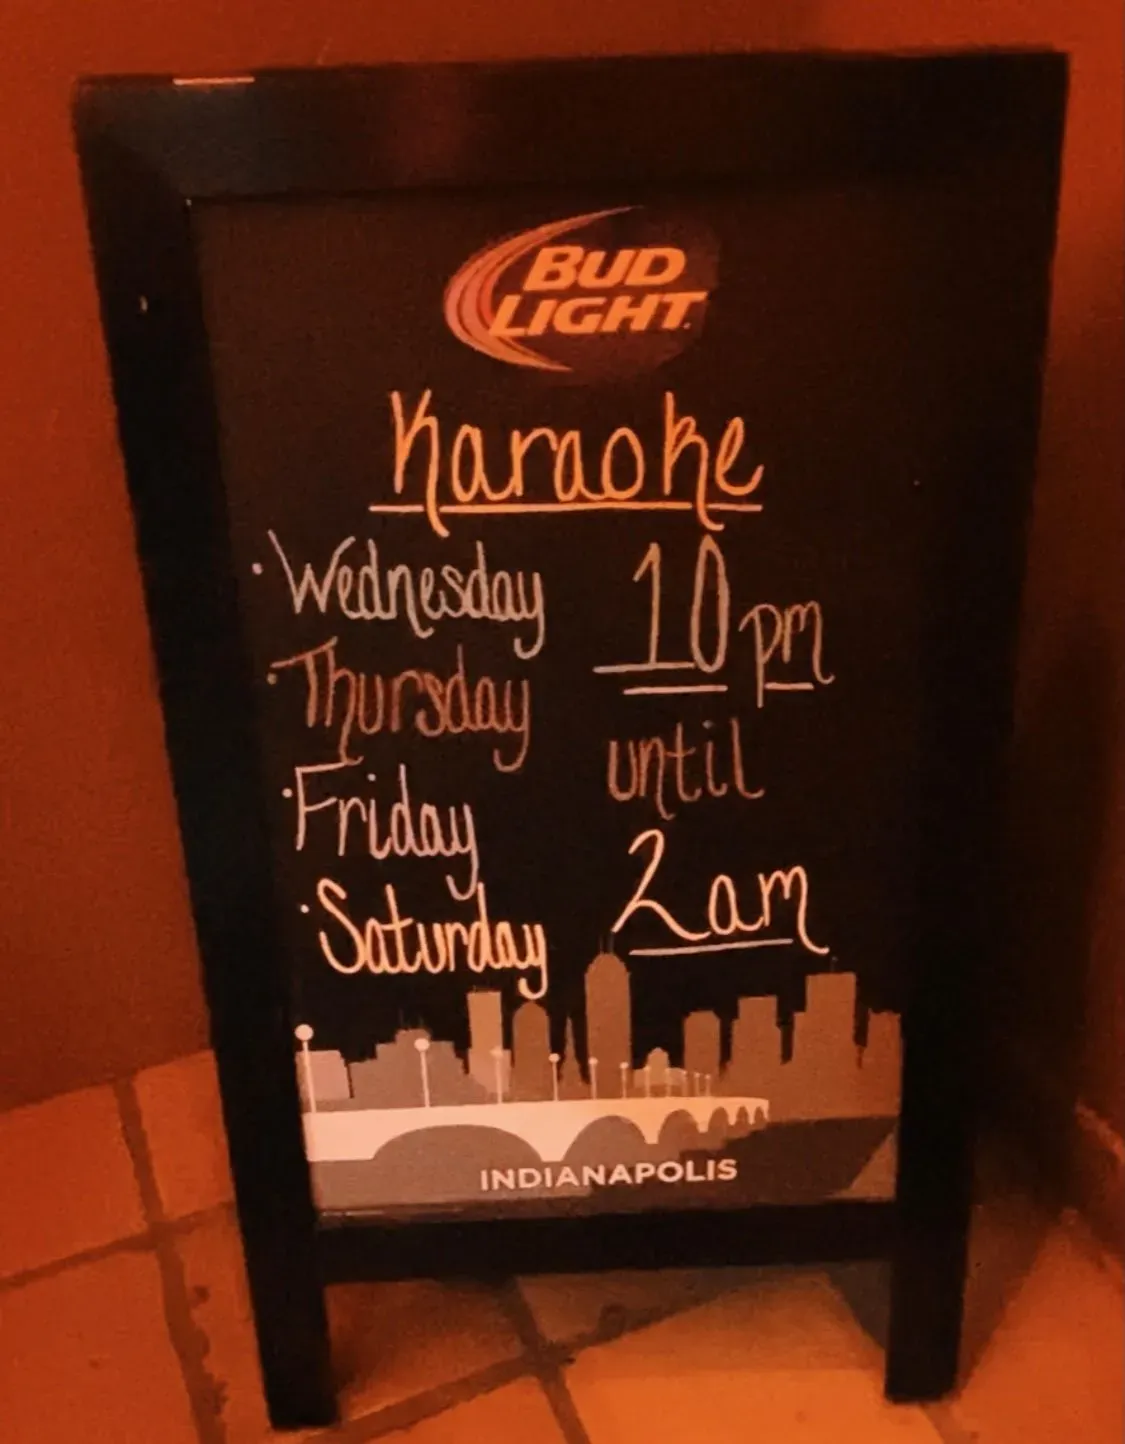 BUD
LIGHT
Karaoke
· Wednesday
· Thursday
· Friday
· Saturday
10 pm
until
2 am
INDIANAPOLIS